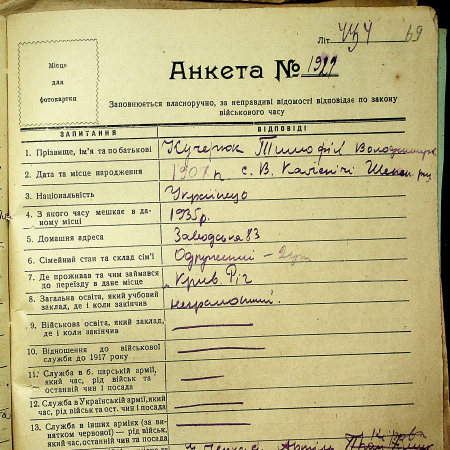 Літ. ЧЗЧ 69
Місце
для
фотокартки
Анкета № 1999
Заповнюється власноручно, за неправдиві відомості відповідає по закону
військового часу
ЗАПИТАННЯ ВІДПОВІДІ
1. Прізвище, ім'я та по батькові Кучерюк Тимофій
2. Дата та місце народження 1907 р. с. В.
3. Національність Українець
4. З якого часу мешкає в да-
ному місці 1935 р.
5. Домашня адреса Заводська 83
6. Сімейний стан та склад сім'ї Одружений –
7. Де проживав та чим займався
до переїзду в дане місце Крив Ріг
8. Загальна освіта, який учбовий
заклад, де і коли закінчив неграмотний.
9. Військова освіта, який заклад,
де і коли закінчив
10. Відношення до військової
служби до 1917 року
11. Служба в б. царській армії,
який час, рід військ та
останній чин і посада
12. Служба в Українській армії, який
час, рід військ та ост. чин і посада
13. Служба в інших арміях (за ви-
нятком червоної) — рід військ,
який час, останній чин та посада